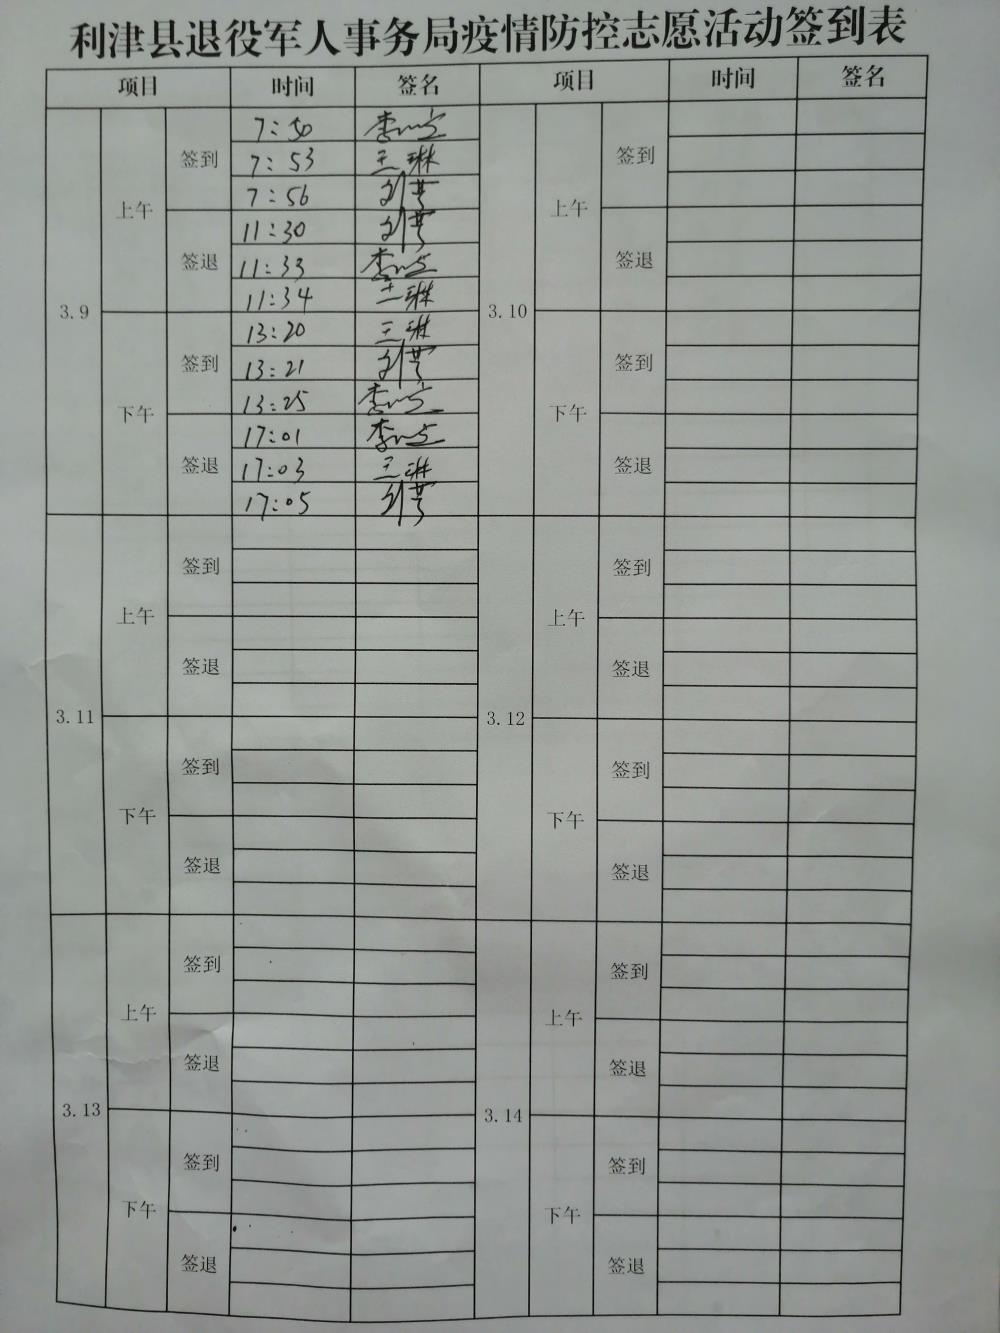 利津县退役军人事务局疫情防控志愿活动签到表
项目 时间 签名 项目 时间 签名
3.9 上午 签到 7:50
7:53 王琳
7:56
签退 11:30
11:33
11:34 王琳
下午 签到 13:20 王琳
13:21
13:25
签退 17:01
17:03 王琳
17:05
3.10 上午 签到
签退
下午 签到
签退
3.11 上午 签到
签退
下午 签到
签退
3.12 上午 签到
签退
下午 签到
签退
3.13 上午 签到
签退
下午 签到
签退
3.14 上午 签到
签退
下午 签到
签退